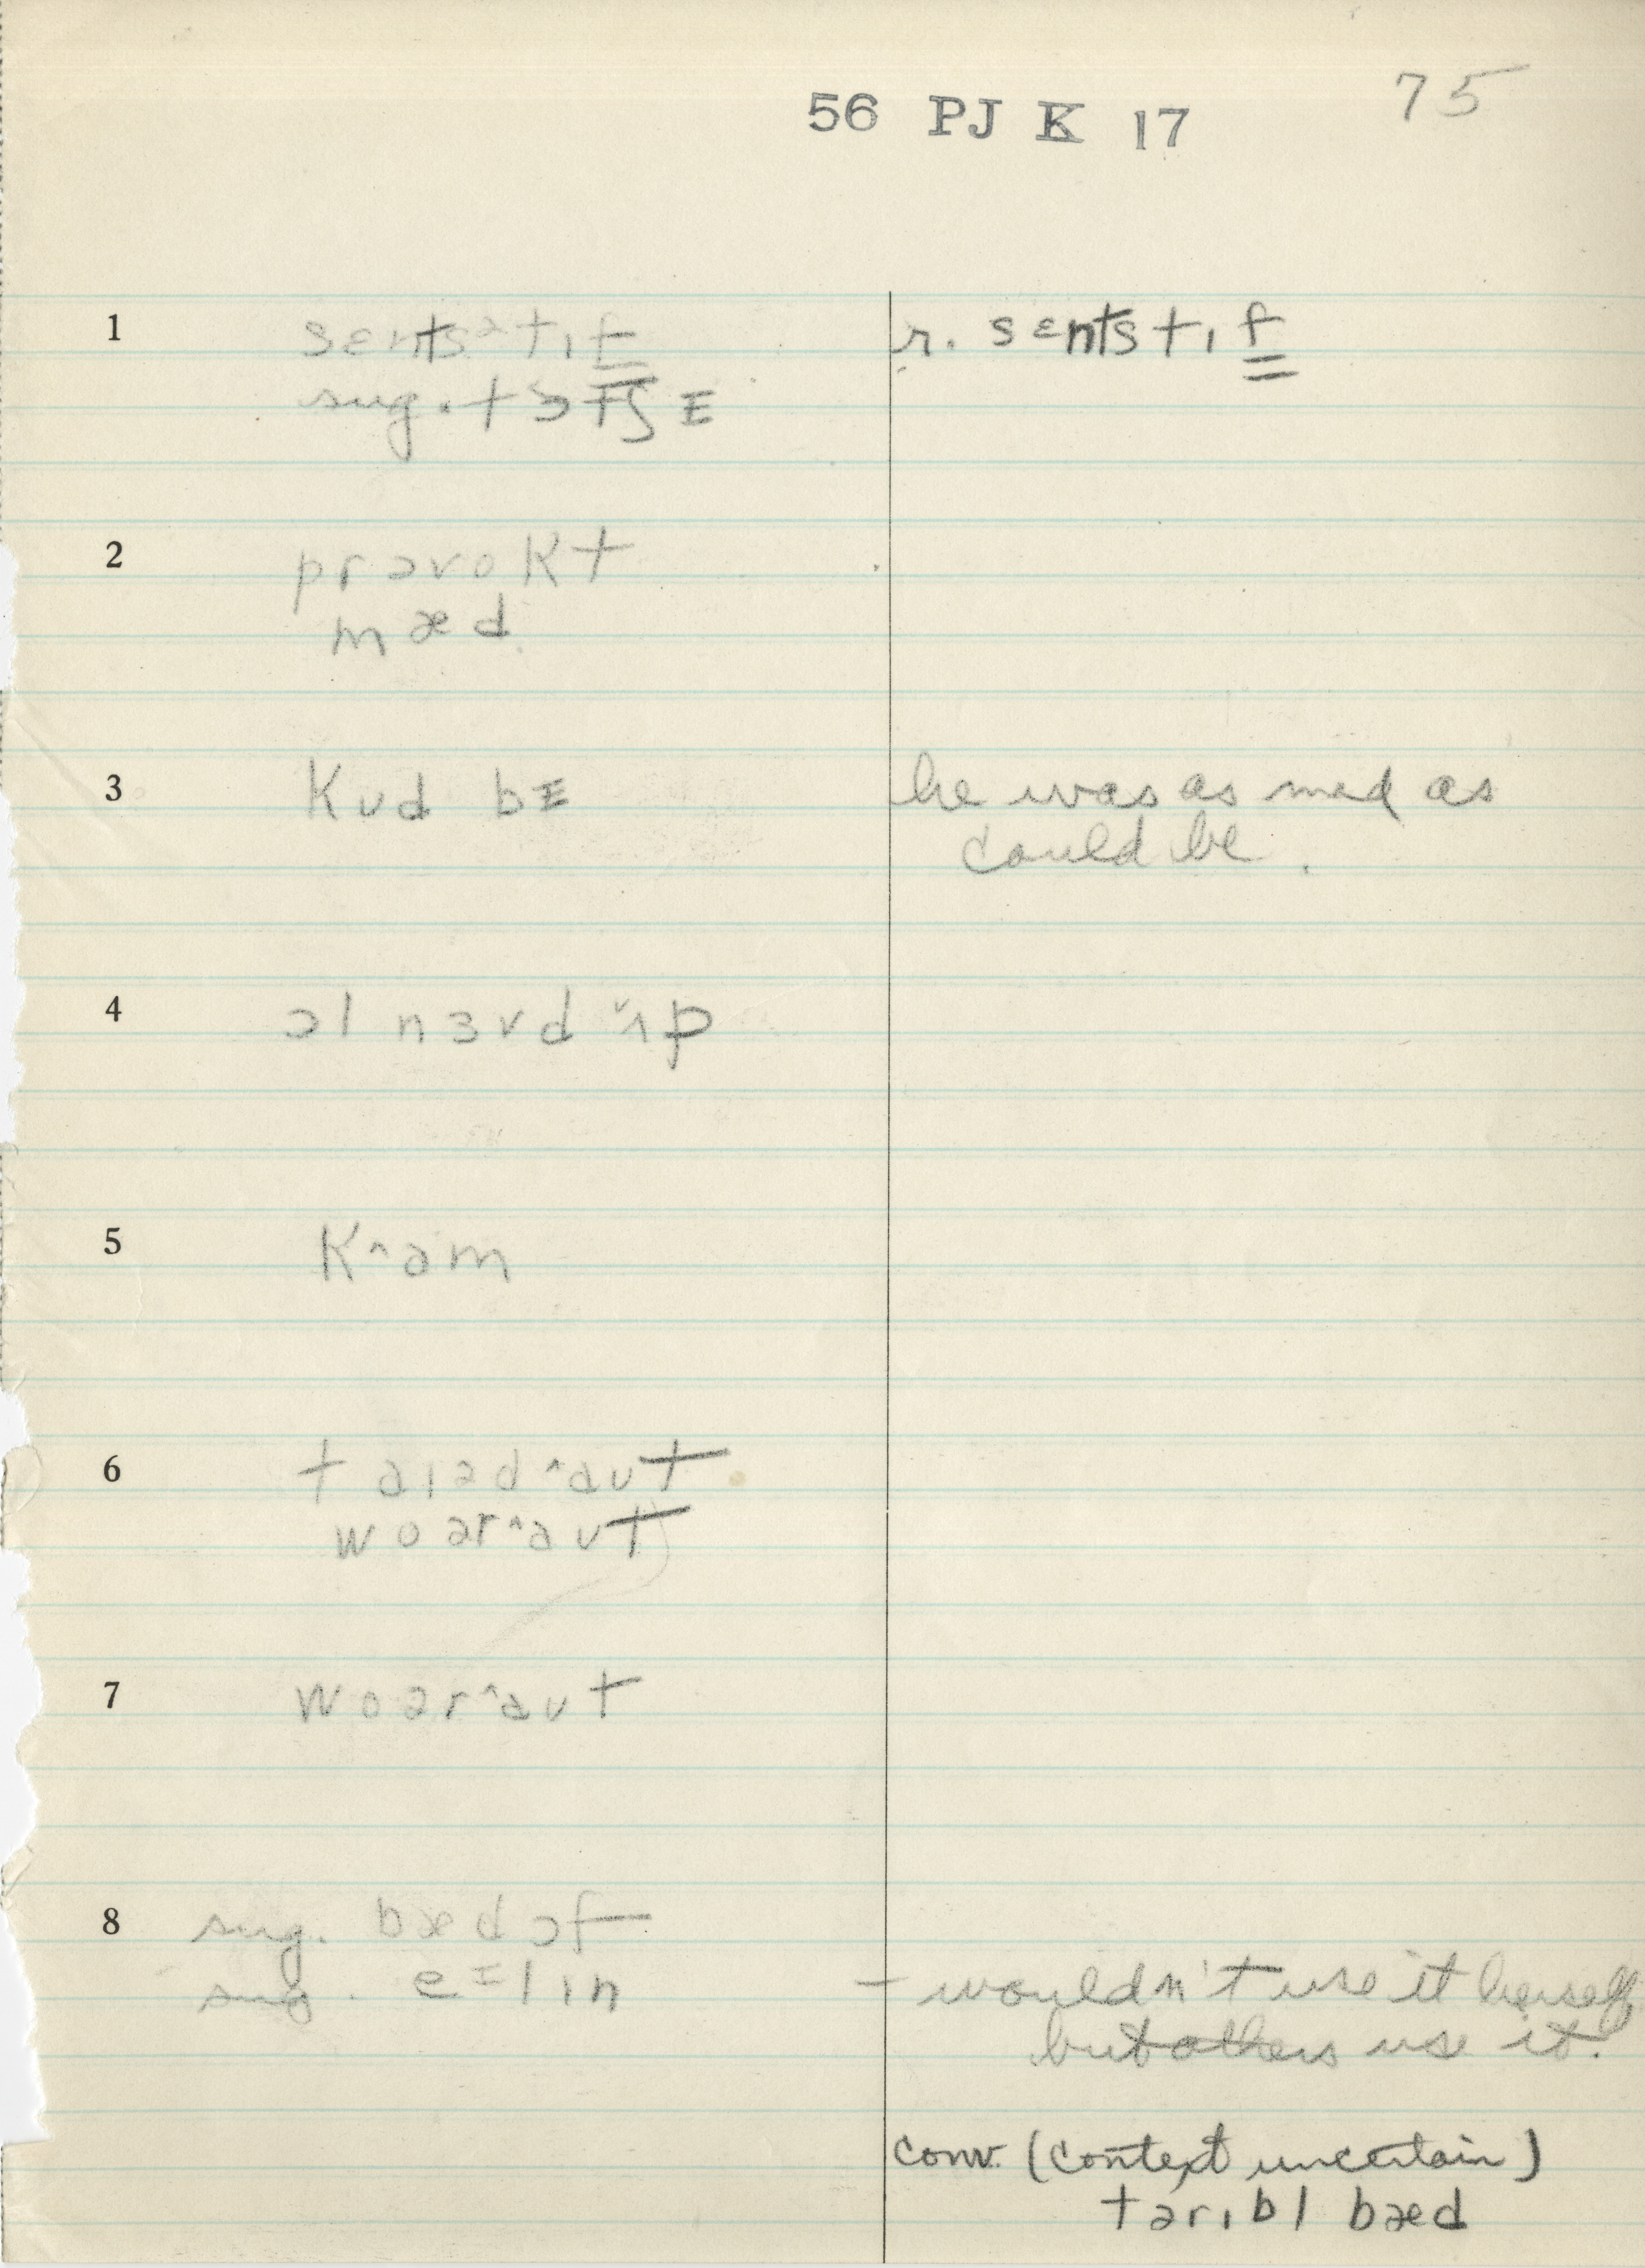 56 PJ K 17 75
1 sɛntsətɪf r. sɛntstɪf
sug. tɔtʃɪ
2 prəvokt
mæd
3 kʊd bɪ he was as mad as
could be.
4 ɔl nɜvd ˅ʌp
5 k^am
6 taɪəd^aʊt
woər^aʊt
7 woər^aʊt
8 sug. bæd ɔf
sug. eɪlɪn – wouldn't use it herself
but others use it.
conv. (context uncertain)
tərɪbl bæd